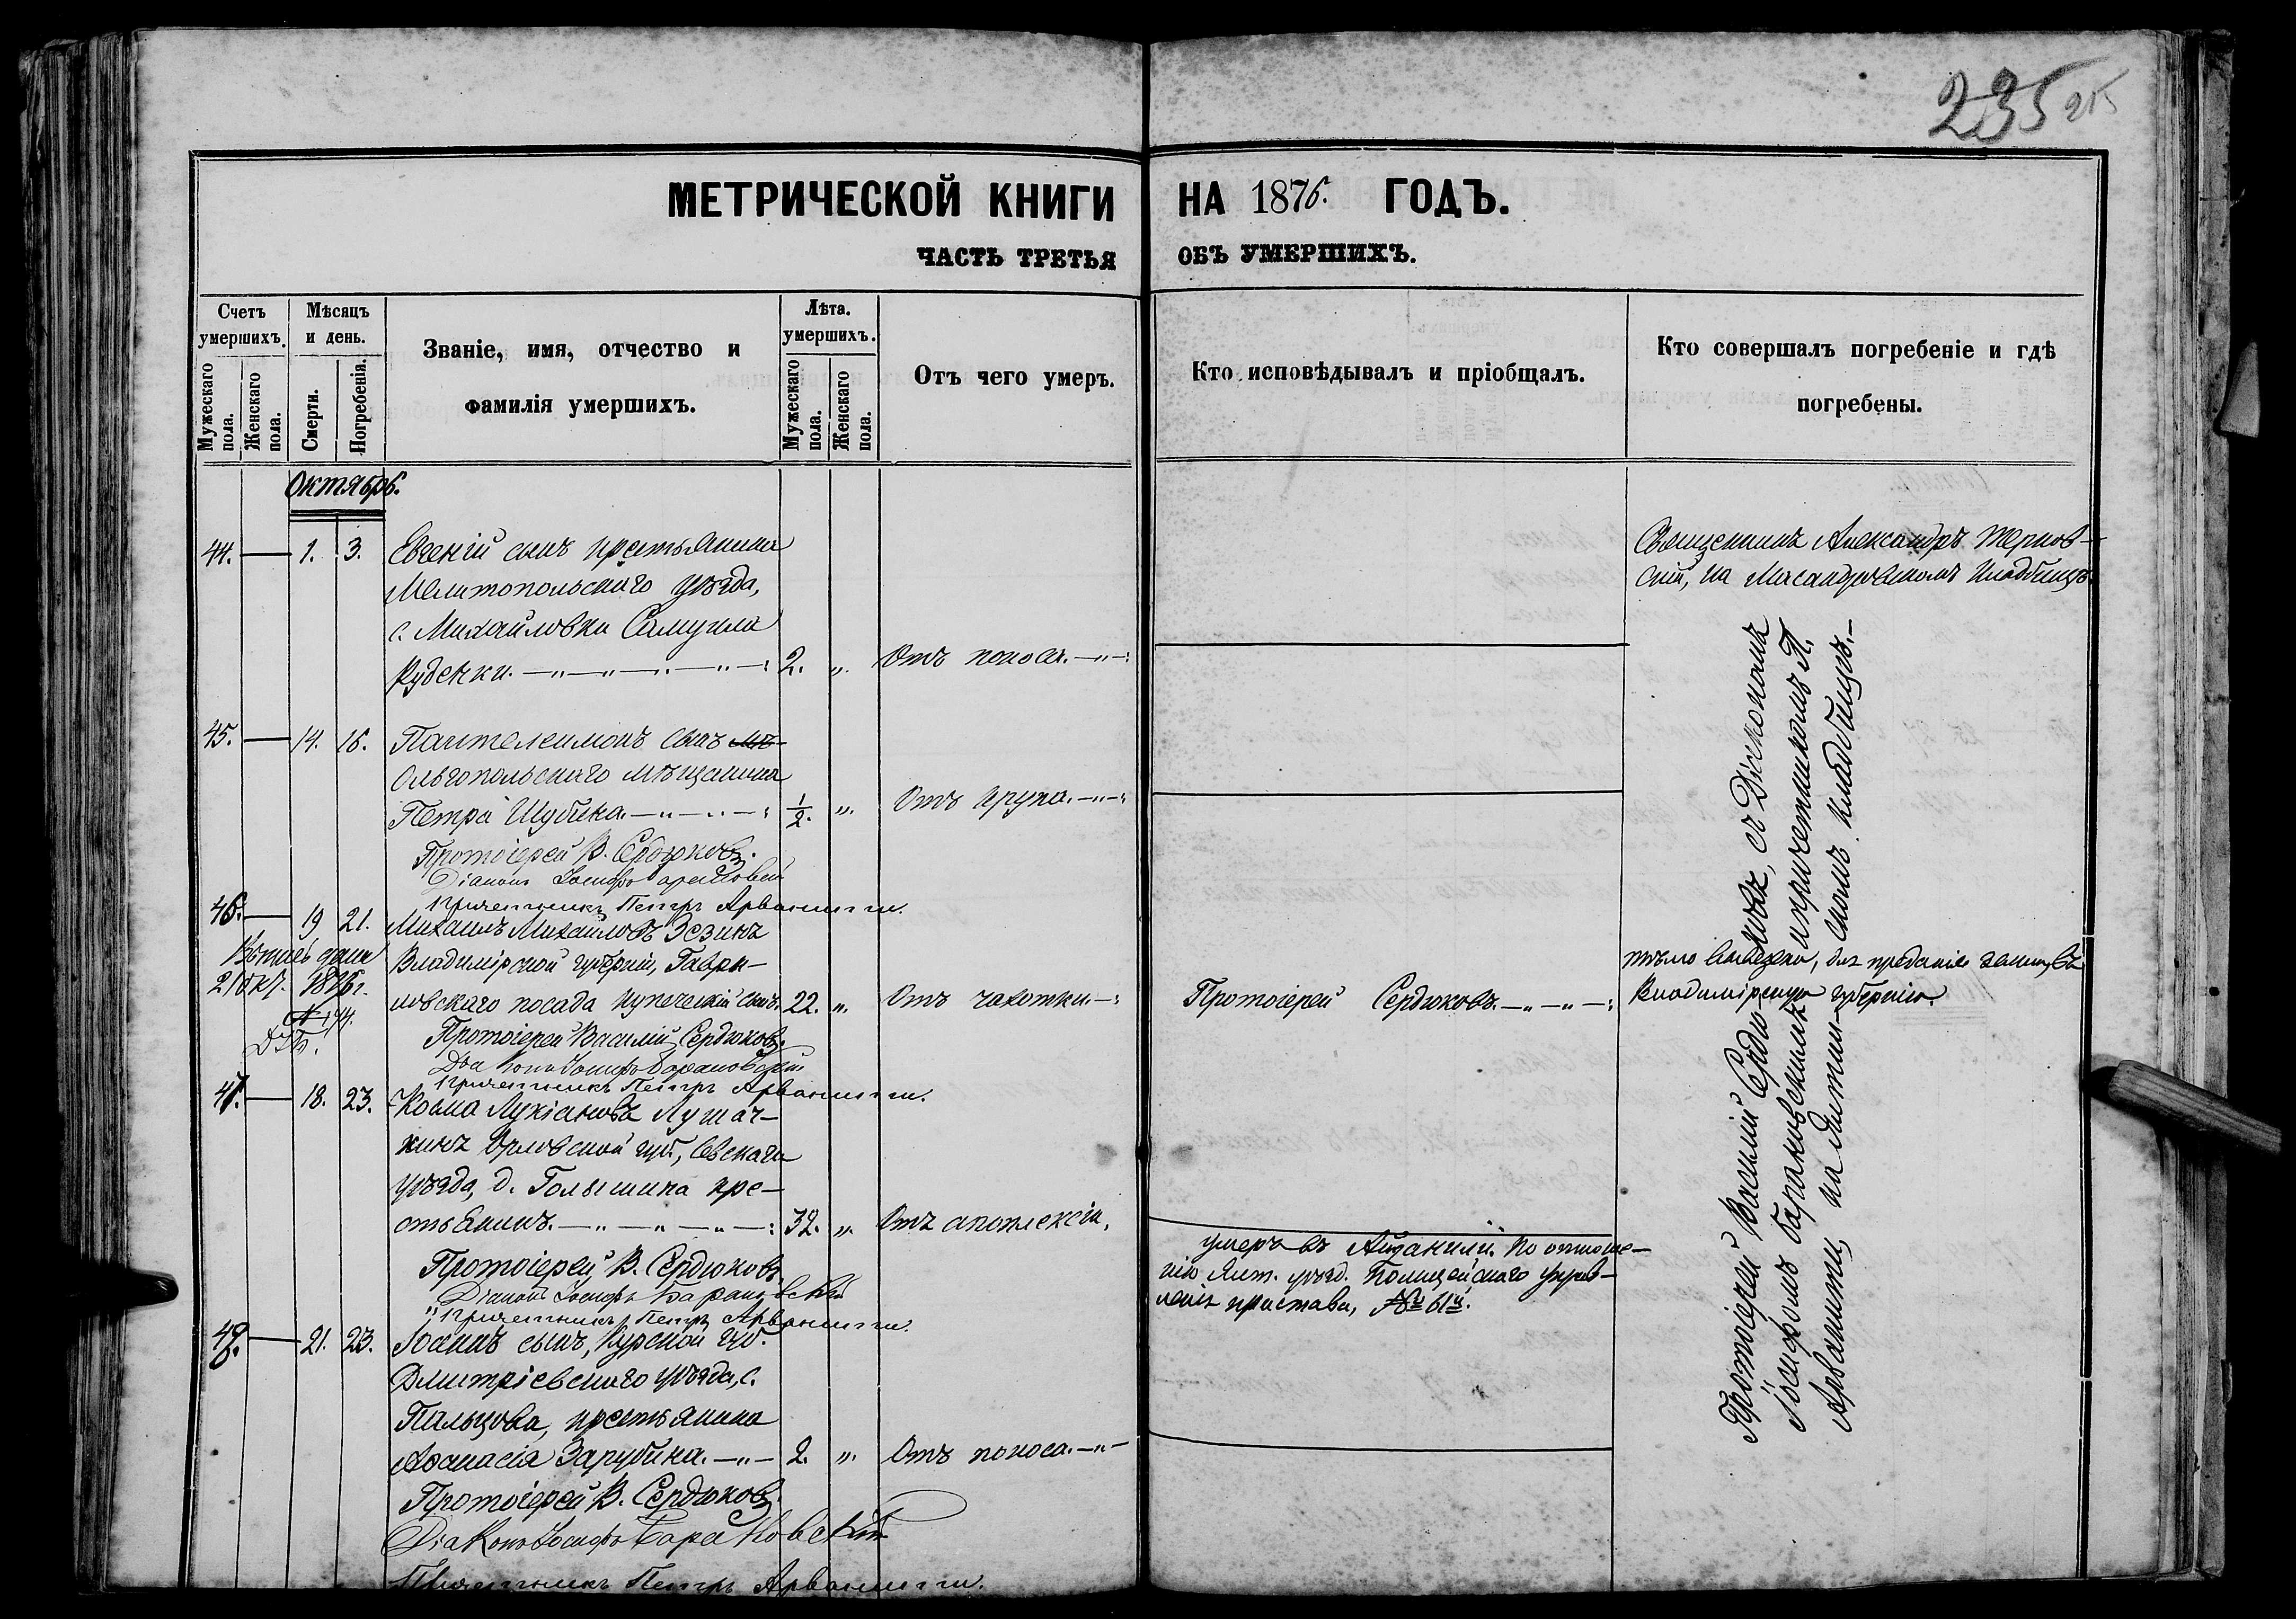 235 215
МЕТРИЧЕСКОЙ КНИГИ НА 1876. ГОДЪ.
ЧАСТЬ ТРЕТЬЯ ОБЪ УМЕРШИХЪ.
Счетъ умершихъ.
Мужескаго пола.
Женскаго пола.
Мѣсяцъ и день.
Смерти.
Погребенія.
Званіе, имя, отчество и
фамилія умершихъ.
Лѣта. умершихъ.
Мужескаго пола.
Женскаго пола.
Отъ чего умеръ.
Кто исповѣдывалъ и пріобщалъ.
Кто совершалъ погребеніе и гдѣ
погребены.
Октябрь.
44. — 1. 3. Евгеній сынъ крестьянина
Мелитопольскаго уѣзда,
с. Михайловки Самуила
Руденки. 2. „ Отъ поноса.
Священникъ Александръ Терновскій, на Масандровскомъ кладбищѣ.
45. — 14. 16. Пантелеимонъ сынъ
Ольгопольскаго мѣщанина
Петра Шубика. 1/2. „ Отъ крупа.
Протоіерей В. Сердюковъ.
Діаконъ Іосифъ Барановскій
Причетникъ Петръ Арванитти.
46. — 19 21. Михаилъ Михайловъ Эзинъ
Владимірской губерніи, Гаври-
ловскаго посада купеческій сынъ. 22. „ Отъ чахотки
Протоіерей Сердюковъ.
тѣло вывезено, для преданія землѣ, въ
Владимірскую губернію.
21 окт. 1876 г.
№ 174.
Протоіерей Василій Сердюковъ
Діаконъ Іосифъ Барановскій
Причетникъ Петръ Арванитти.
47. — 18. 23. Косма Лукіановъ Лушач-
кинъ Орловской губ., Сѣвскаго
уѣзда, д. Голышина кре-
стьянинъ. 32. „ Отъ апоплексіи.
умеръ въ Айданили. По отноше-
нію Ялт. уѣзд. Полицейскаго управ-
ленія пристава, № 61й.
Протоіерей В. Сердюковъ
Діаконъ Іосифъ Барановскій
Причетникъ Петръ Арванитти.
48. — 21. 23. Іоаннъ сынъ, Курской губ.
Дмитріевскаго уѣзда, с.
Пальцова, крестьянина
Аѳанасія Зарубина. 2. „ Отъ поноса.
Протоіерей В. Сердюковъ
Діаконъ Іосифъ Барановскій
Причетникъ Петръ Арванитти.
Протоіерей Василій Сердюковъ, съ Діакономъ
Іосифомъ Барановскимъ и причетникомъ П.
Арванитти, на Ялтинскомъ кладбищѣ.